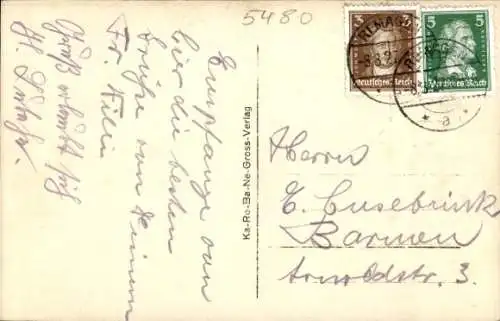 5480
Empfange von
hier die besten
Grüße von Deinem
Fr. Willi
Gruß erlaubt sich
Ka-Ro-Ba-Ne-Gross-Verlag
REMAGEN
3
Deutsches Reich
5
Deutsches Reich
a
Herrn
E. Cusebrink
Barmen
Arnoldstr. 3.